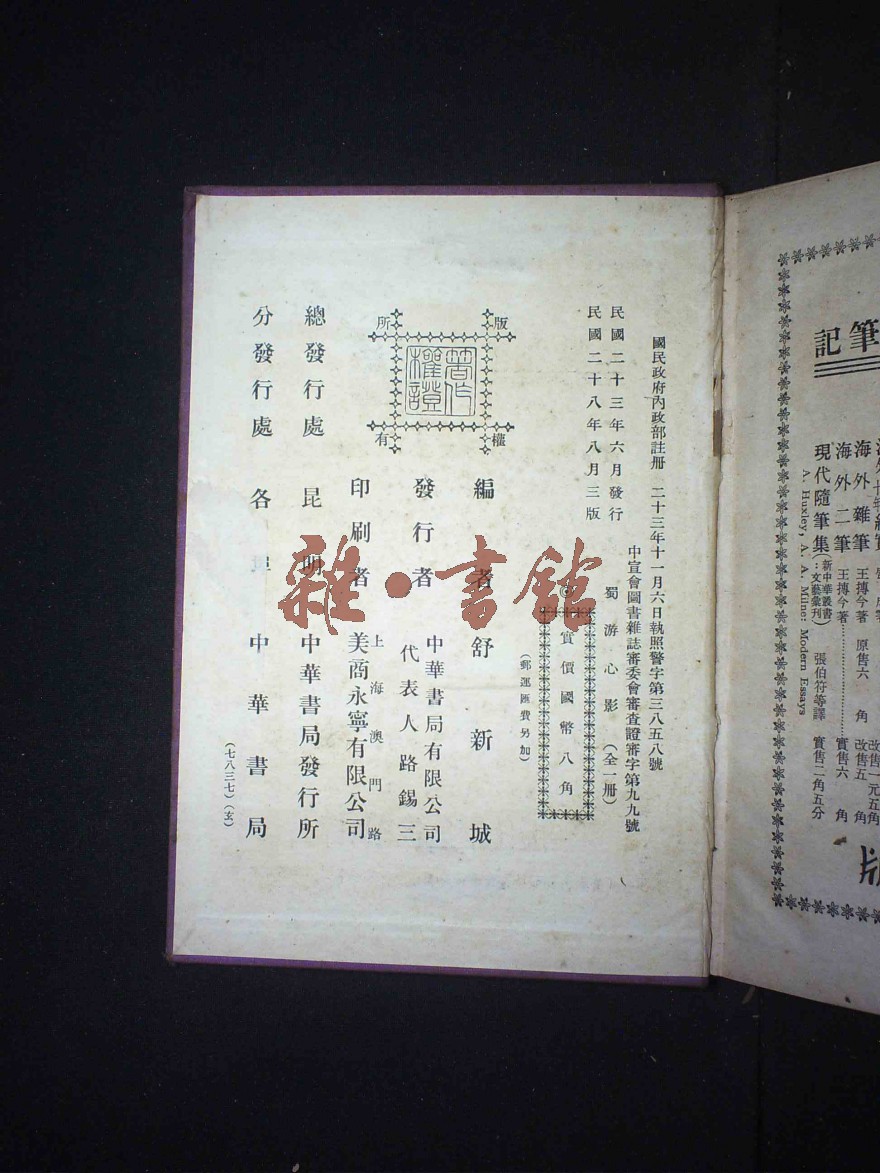 國民政府內政部註冊 二十三年十一月六日執照警字第三八五八號
中宣會圖書雜誌審委會審查證審字第九九號
民國二十三年六月發行
民國二十八年八月三版
蜀游心影(全一冊)
實價國幣八角
(郵運匯費另加)
版權所有
著作權證
編者 舒新城
發行者 中華書局有限公司
代表人路錫三
印刷者 上海澳門路
美商永寧有限公司
總發行處 昆明 中華書局發行所
分發行處 各埠 中華書局
(七八三七)(玄)
雜·書館
筆記
海外雜筆 王摶今著 原售六角 改售五角
海外二筆 王摶今著 實售六角
現代隨筆集(新中華叢書:文藝彙刊) 張伯符等譯 實售二角五分
A. Huxley, A. A. Milne: Modern Essays